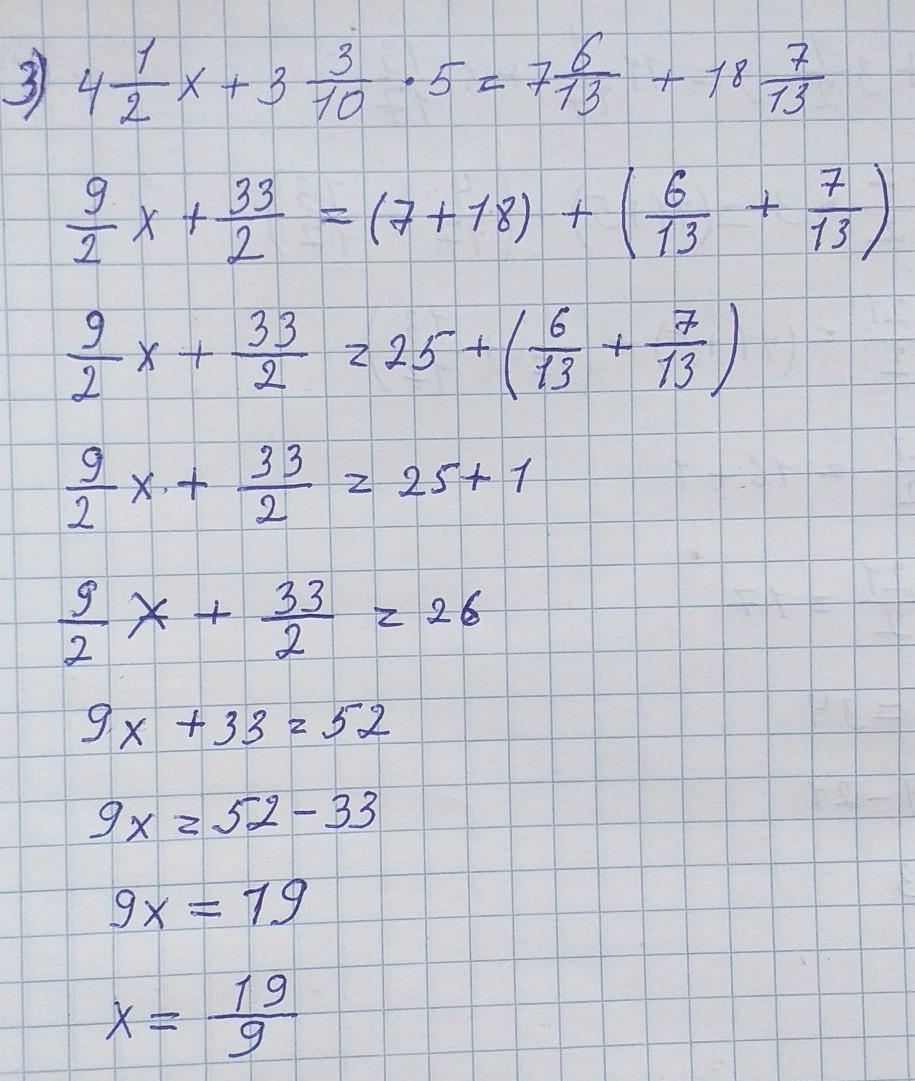 3) 4 1/2 x + 3 3/10 · 5 = 7 6/13 + 18 7/13
9/2 x + 33/2 = (7 + 18) + (6/13 + 7/13)
9/2 x + 33/2 = 25 + (6/13 + 7/13)
9/2 x + 33/2 = 25 + 1
9/2 x + 33/2 = 26
9x + 33 = 52
9x = 52 - 33
9x = 19
x = 19/9